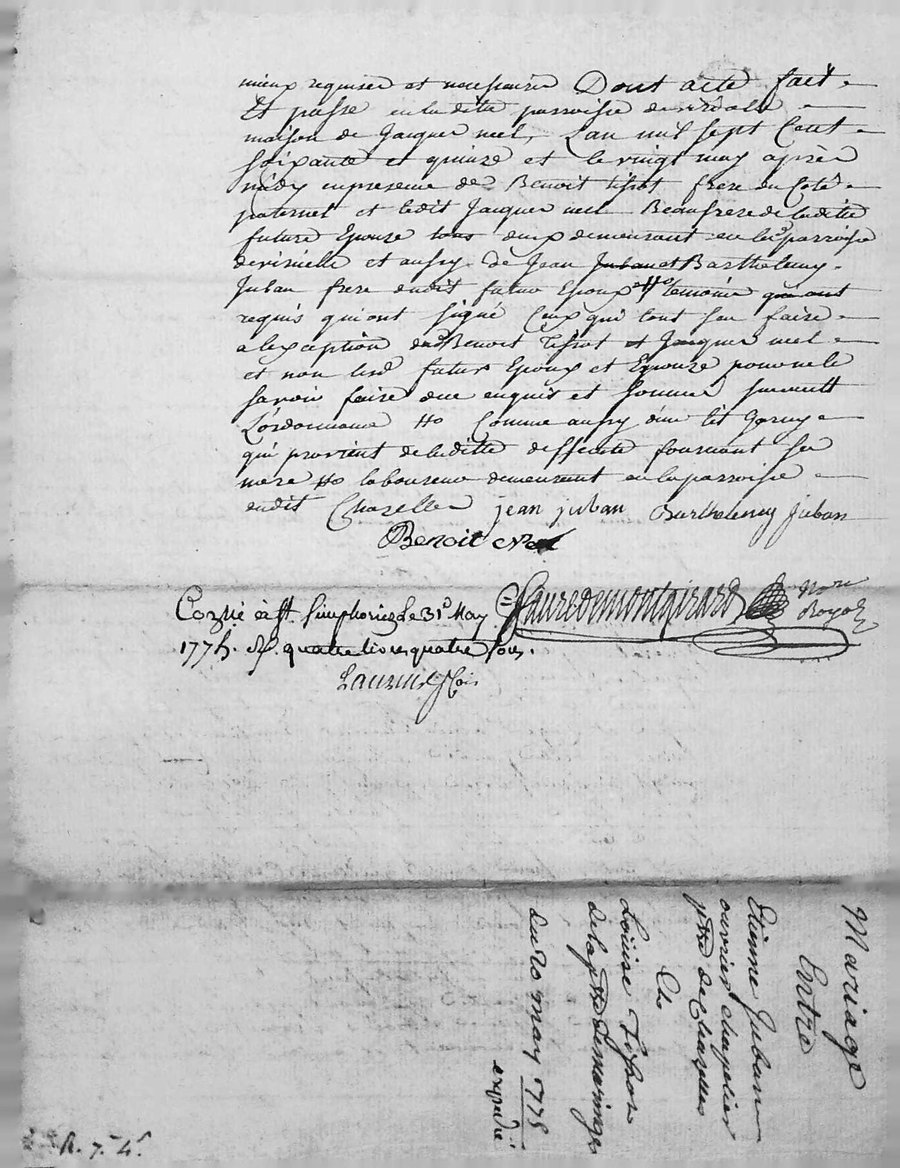 mieux requiser et necessaire Dont acte fait
Et passé en ladite parroisse de
maison de Jacques neel, Lan mil sept Cent
soixante et quinze et le vingt may après
midy en presence de Benoit tissot frere du Coté
paternel et ledit Jacques neel Beaufrere de ladite
future Epouse tous deux demeurant en lad parroisse
et aussy de Jean Juban et Barthelemy
Juban frere dudit futur Epoux temoins
requis qui ont signé Ceux qui lont sçu faire
a lexception dud Benoit Tissot et Jacques neel
et non lesd futurs Epoux et Epouse pour ne le
savoir faire de ce enquis et sommés suivant
L'ordonnance Comme aussy d'un lit garny
qui provient de ladite deffunte sa
mere laboureur demeurant en la parroisse
dudit Chazelles jean juban Barthelemy juban
Benoit
Con^lé à St. Simphorien le 31^e May
1775. R/. quatre livres quatre sous.
Fauredemontgirard no^re Royal
Mariage
Entre
Etienne Juban
ouvrier chapelier
p^sse de Chazelles
Et
Louise Tissot
de la p^sse de maringe
du 20 may 1775
expedié
R. 7.^# 4.^s